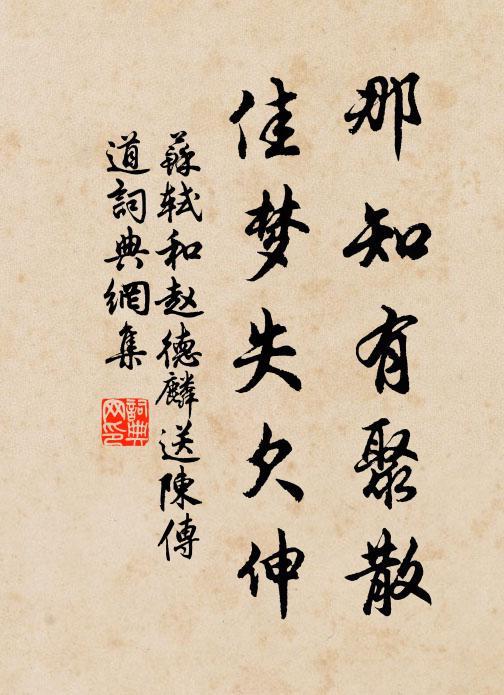 那知有聚散
佳梦失欠伸
蘇轼和赵德麟送陳傅
道詞典網集
詞典
网印